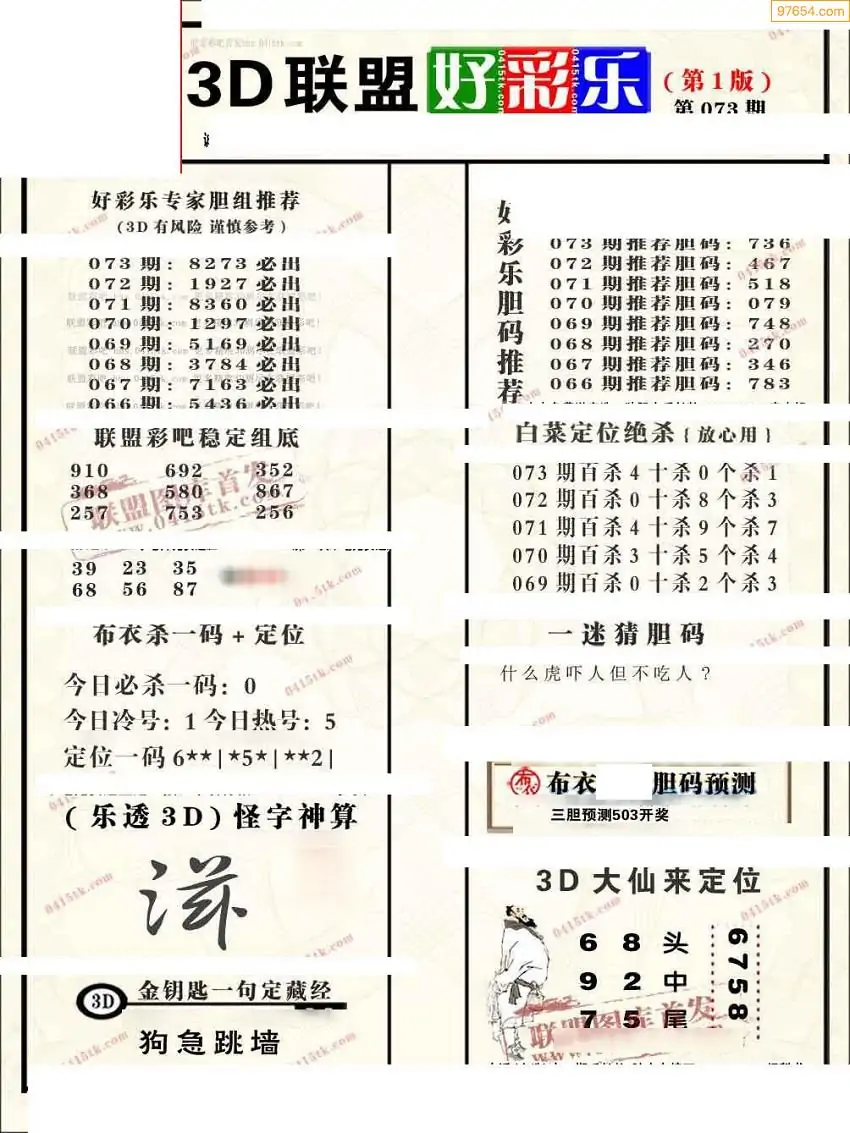 97654.com
3D联盟好彩乐
(第1版)
第073期
好彩乐专家胆组推荐
(3D有风险 谨慎参考)
073期:8273必出
072期:1927必出
071期:8360必出
070期:1297必出
069期:5169必出
068期:3784必出
067期:7163必出
066期:5436必出
联盟彩吧稳定组底
910 692 352
368 580 867
257 753 256
39 23 35
68 56 87
布衣杀一码+定位
今日必杀一码:0
今日冷号:1 今日热号:5
定位一码6**|*5*|**2|
(乐透3D)怪字神算
滋
3D 金钥匙一句定藏经
狗急跳墙
好彩乐胆码推荐
073期推荐胆码:736
072期推荐胆码:467
071期推荐胆码:518
070期推荐胆码:079
069期推荐胆码:748
068期推荐胆码:270
067期推荐胆码:346
066期推荐胆码:783
白菜定位绝杀{放心用}
073期百杀4十杀0个杀1
072期百杀0十杀8个杀3
071期百杀4十杀9个杀7
070期百杀3十杀5个杀4
069期百杀0十杀2个杀3
一迷猜胆码
什么虎吓人但不吃人?
布衣 胆码预测
三胆预测503开奖
3D大仙来定位
6 8 头
9 2 中
7 5 尾
6758
联盟图库首发
www.0415tk.com